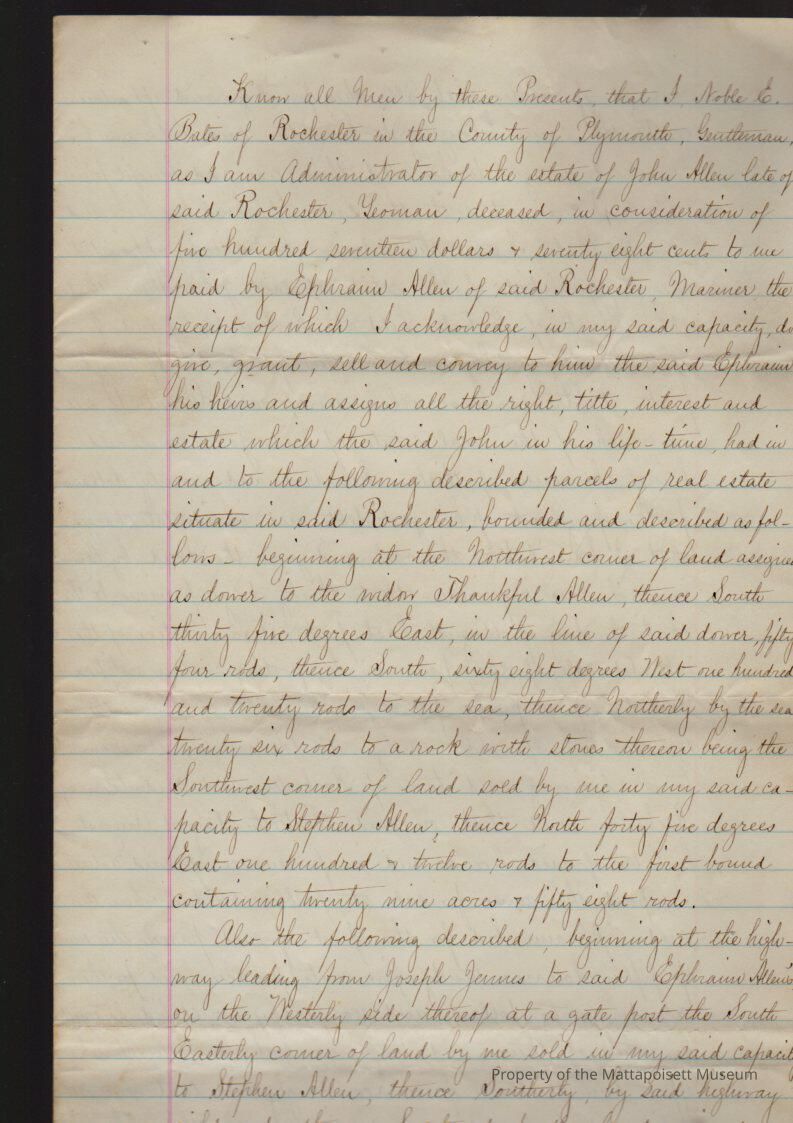 Know all Men by these Presents, that I, Noble E.
Bates of Rochester in the County of Plymouth, Gentleman,
as I am Administrator of the estate of John Allen late of
said Rochester, Yeoman, deceased, in consideration of
five hundred seventeen dollars & seventy eight cents to me
paid by Ephraim Allen of said Rochester, Mariner, the
receipt of which I acknowledge, in my said capacity, do
give, grant, sell and convey to him the said Ephraim
his heirs and assigns all the right, title, interest and
estate which the said John in his life-time, had in
and to the following described parcels of real estate
situate in said Rochester, bounded and described as fol-
lows - beginning at the Northwest corner of land assigned
as dower to the widow Thankful Allen, thence South
thirty five degrees East, in the line of said dower, fifty
four rods, thence South, sixty eight degrees West one hundred
and twenty rods to the sea, thence Northerly by the sea
twenty six rods to a rock with stones thereon being the
Southwest corner of land sold by me in my said ca-
pacity to Stephen Allen, thence North forty five degrees
East one hundred & twelve rods to the first bound
containing twenty nine acres & fifty eight rods.
Also the following described, beginning at the high-
way leading from Joseph Jennes to said Ephraim Allen's
on the Westerly side thereof at a gate post the South
Easterly corner of land by me sold in my said capacity
to Stephen Allen, thence Southerly, by said highway
Property of the Mattapoisett Museum